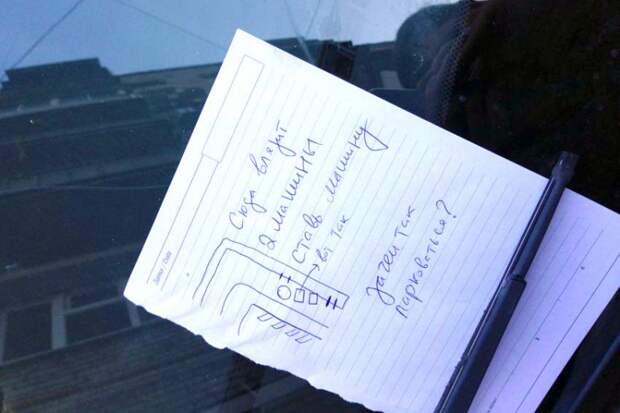 Сюда влазит
2 машины
Ставь машину
вот так
зачем так
парковаться?